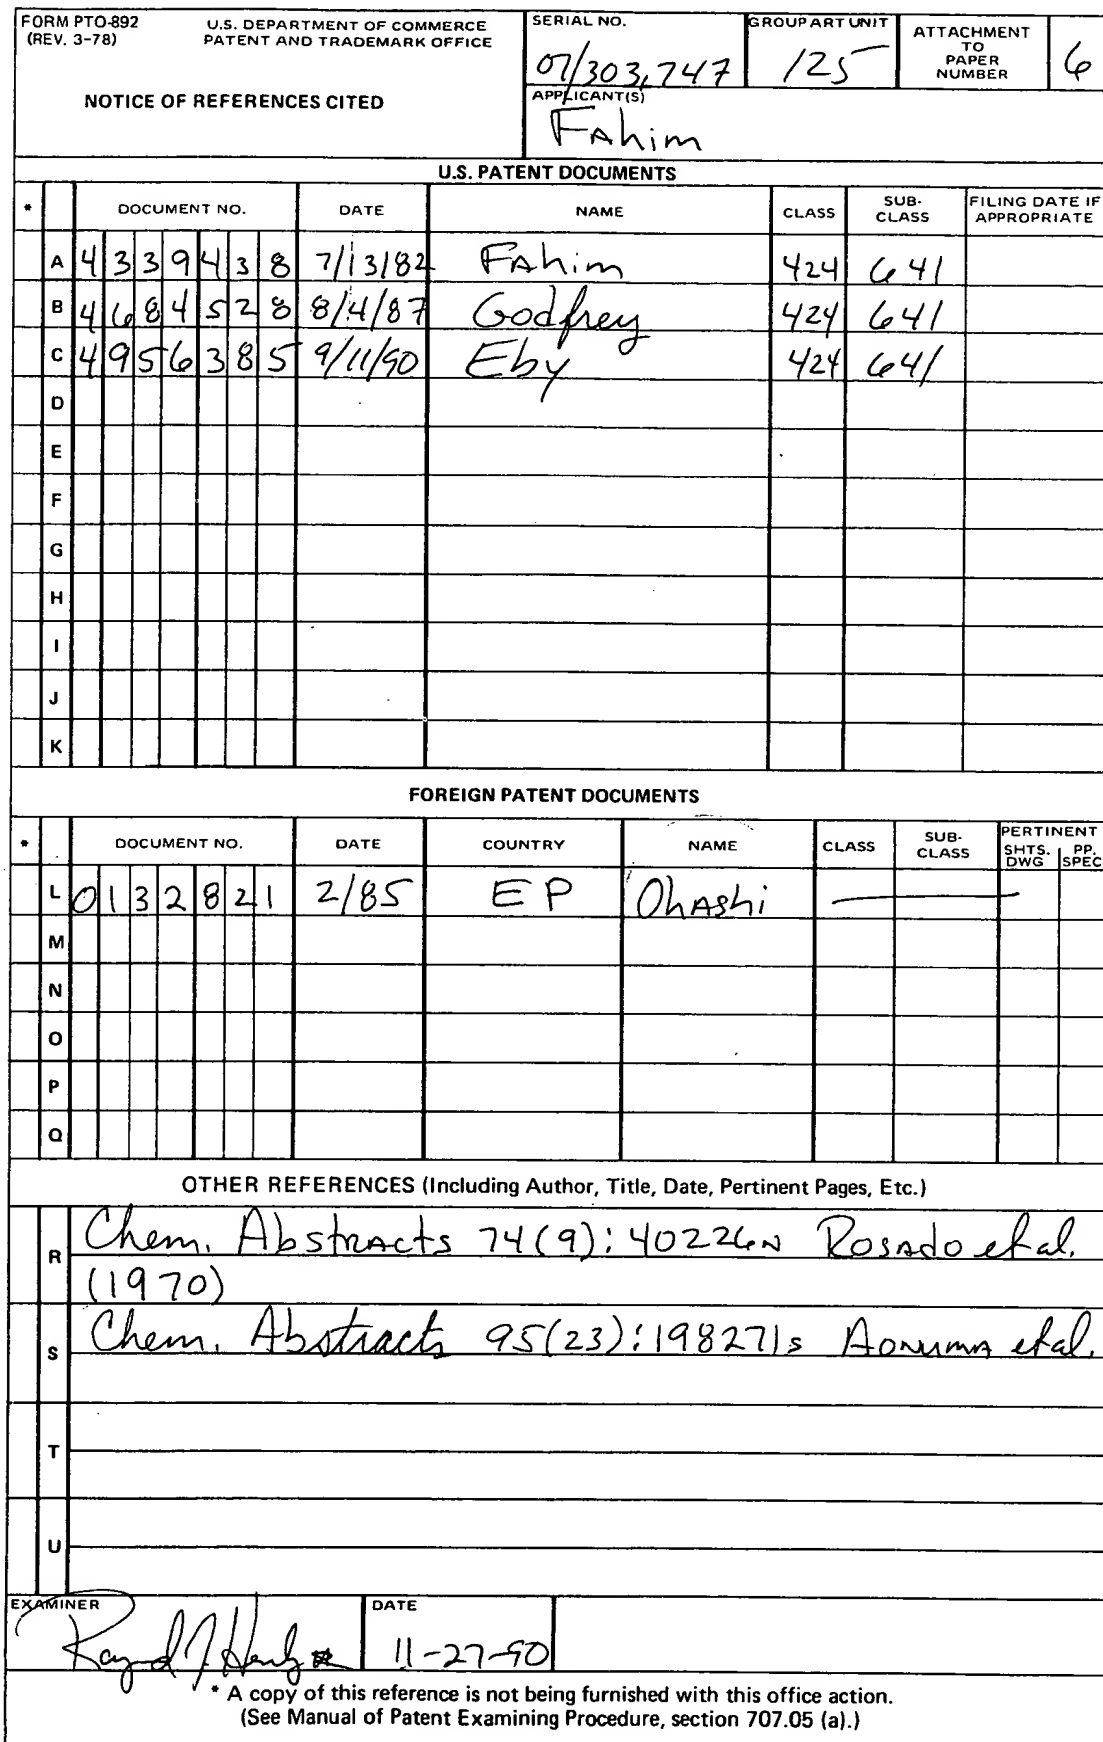 FORM PTO-892 U.S. DEPARTMENT OF COMMERCE
(REV. 3-78) PATENT AND TRADEMARK OFFICE
NOTICE OF REFERENCES CITED
SERIAL NO.
07/303,747
GROUP ART UNIT
125
ATTACHMENT
TO
PAPER
NUMBER
6
APPLICANT(S)
Fahim
U.S. PATENT DOCUMENTS
* DOCUMENT NO. DATE NAME CLASS SUB-CLASS FILING DATE IF APPROPRIATE
A 4339438 7/13/82 Fahim 424 641
B 4684528 8/4/87 Godfrey 424 641
C 4956385 9/11/90 Eby 424 641
D
E
F
G
H
I
J
K
FOREIGN PATENT DOCUMENTS
* DOCUMENT NO. DATE COUNTRY NAME CLASS SUB-CLASS PERTINENT SHTS. DWG PP. SPEC
L 0132821 2/85 EP Ohashi
M
N
O
P
Q
OTHER REFERENCES (Including Author, Title, Date, Pertinent Pages, Etc.)
R Chem. Abstracts 74(9):40226N Rosado et al.
(1970)
S Chem. Abstracts 95(23):198271s Aonuma et al.
T
U
EXAMINER
DATE
11-27-90
* A copy of this reference is not being furnished with this office action.
(See Manual of Patent Examining Procedure, section 707.05 (a).)